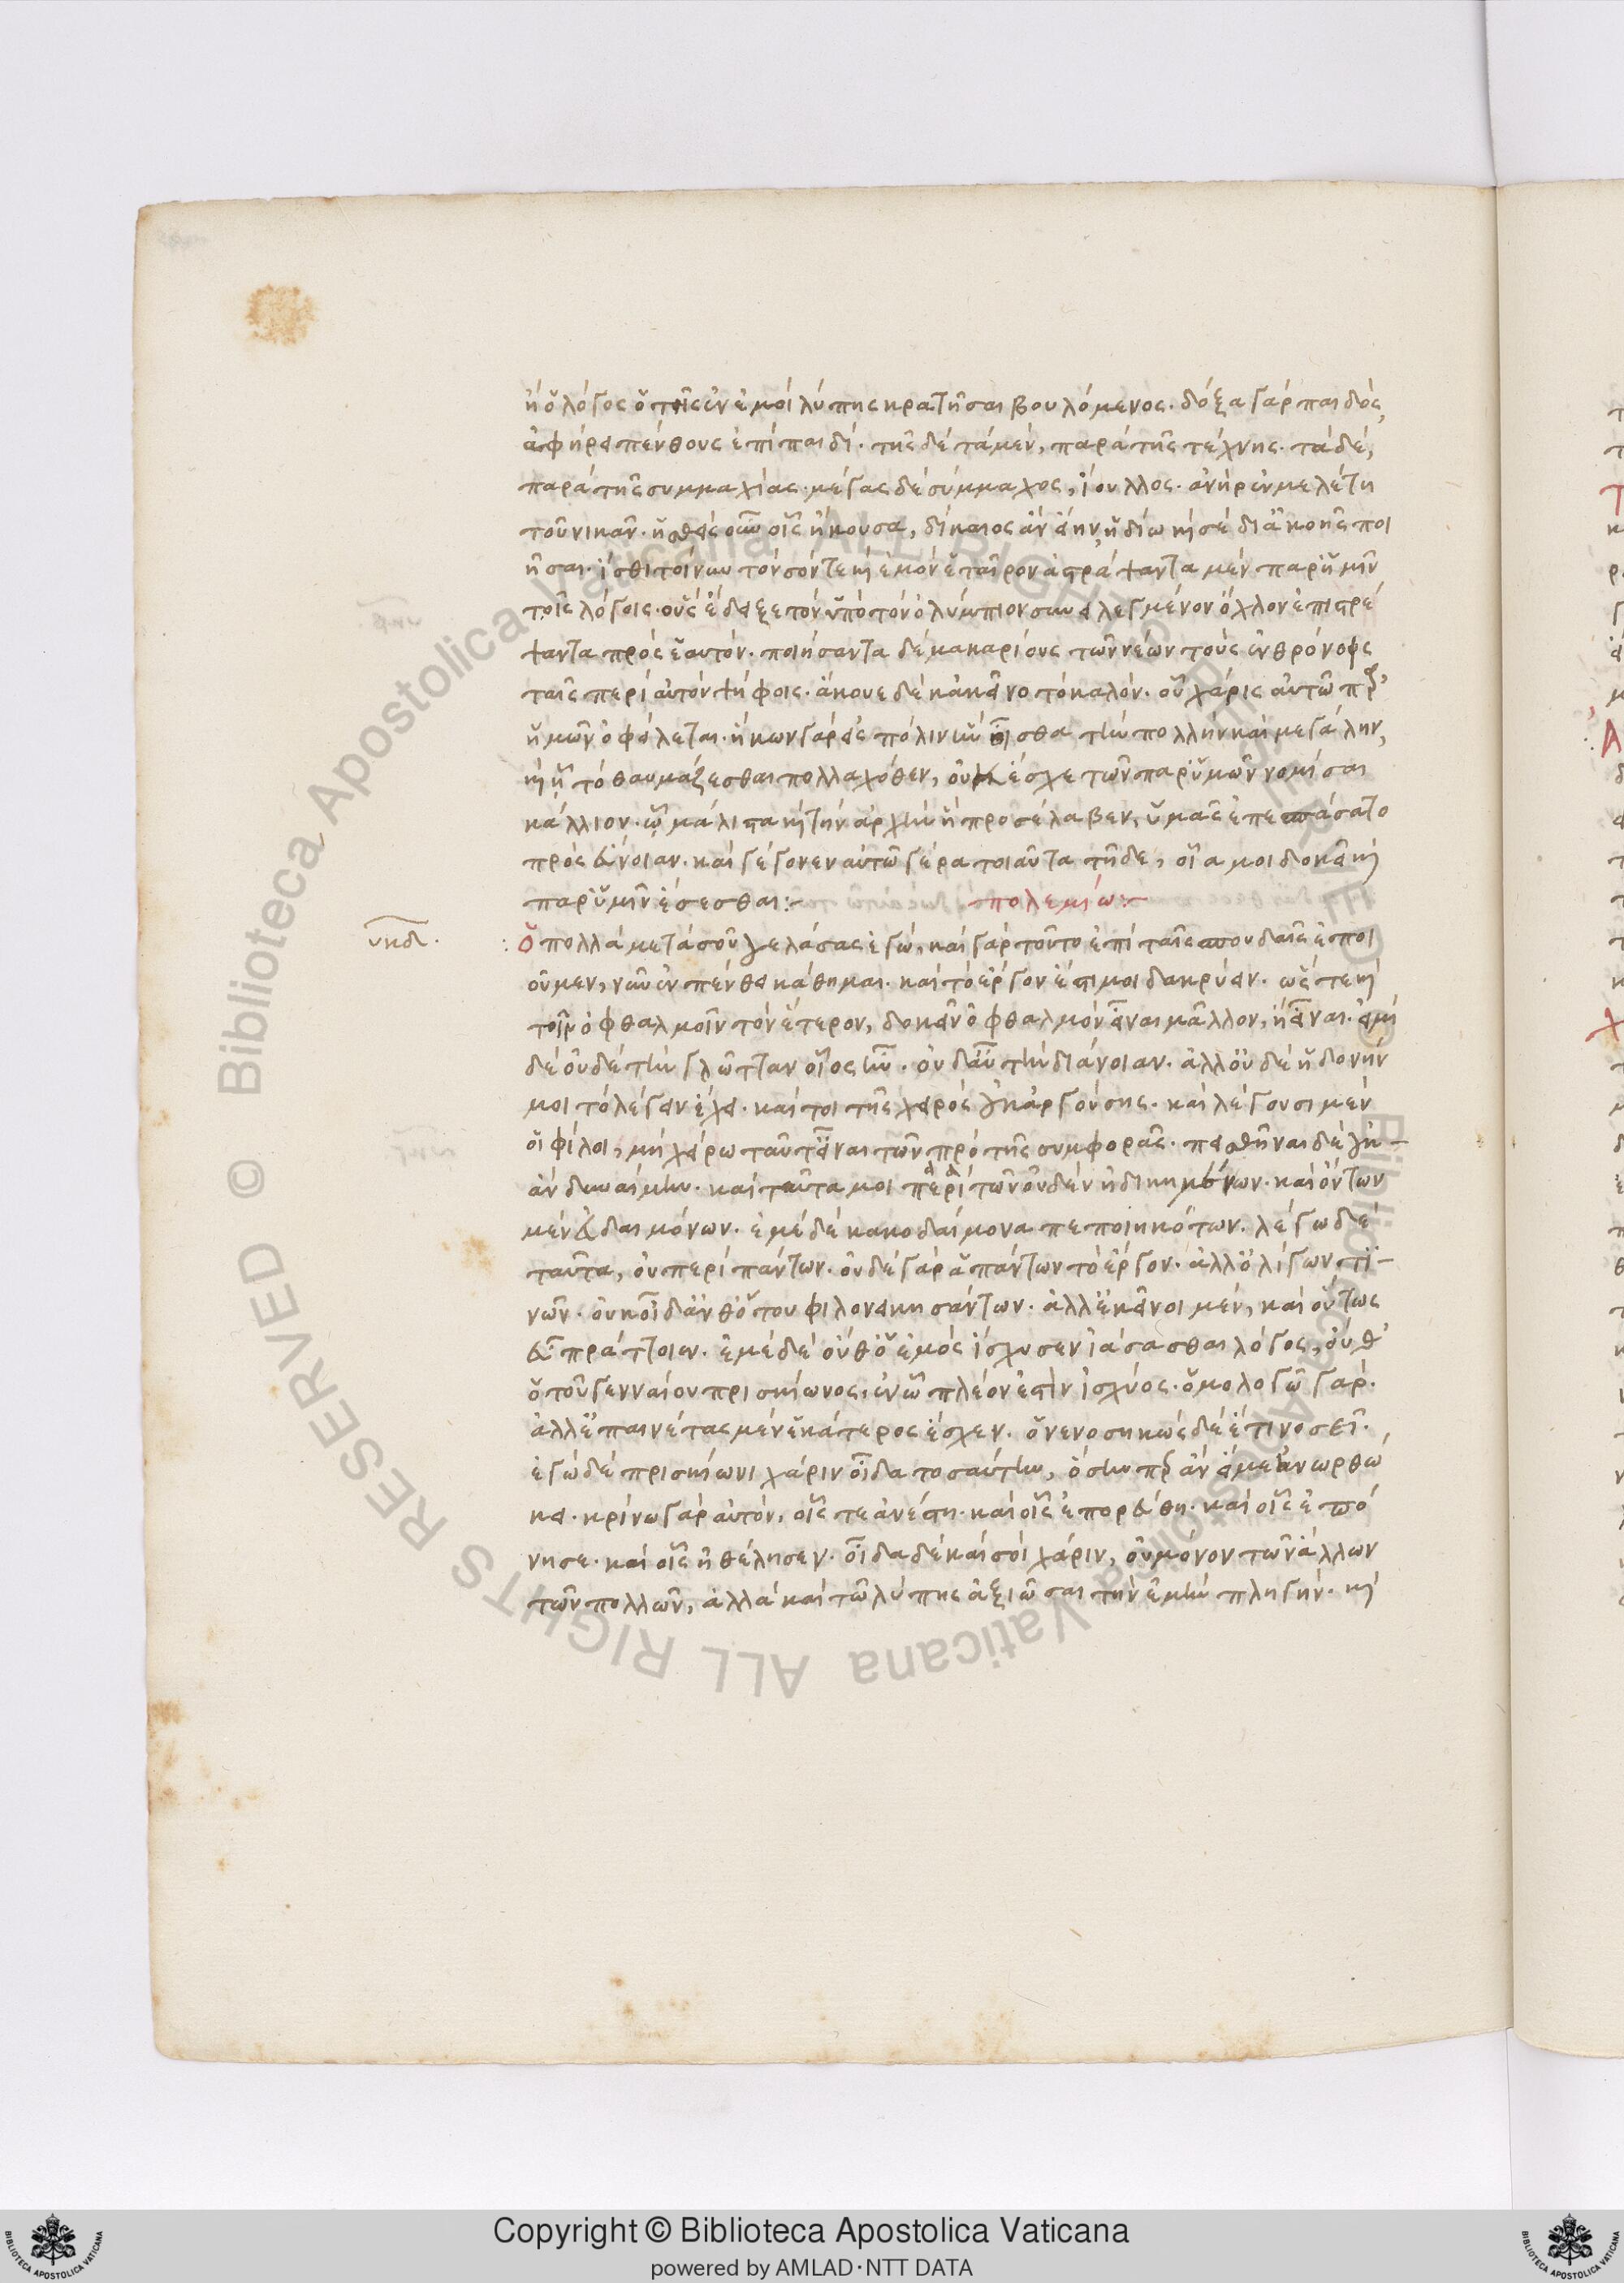 ἢ ὁ λόγος ὁ τοῖς ἐν ἐμοὶ λύπης κρατῆσαι βουλόμενος. δόξα γὰρ παιδὸς,
ἀφήρει πένθους ἐπὶ παιδί. τῆς δὲ τὰ μὲν, παρὰ τῆς τέχνης. τὰ δὲ,
παρὰ τῆς συμμαχίας. μέγας δὲ σύμμαχος, ἴουλλος. ἀνὴρ ἐν μελέτῃ
τοῦ νικᾶν. ἡσθεὶς οὖν οἷς ἤκουσα, δίκαιος ἂν εἴην, ἡδίω καὶ σὲ δι' ἀκοῆς ποι
ῆσαι. ἴσθι τοίνυν τὸν σόν τε καὶ ἐμὸν ἑταῖρον ἀστράψαντα μὲν παρ' ἡμῖν
τοῖς λόγοις. οὓς ἔδειξε τὸν ὑπὸ τὸν ὀλύμπιον συνειλεγμένον ὄχλον ἐπιστρέ
ψαντα πρὸς ἑαυτόν. ποιήσαντα δὲ μακαρίους τῶν νέων τοὺς ἐν θρόνοις
ταῖς περὶ αὐτὸν ψήφοις. ἄκουε δὲ κἀκεῖνο τὸ καλόν. οὗ χάρις αὐτῷ παρ'
ἡμῶν ὀφείλεται. ἥκων γὰρ εἰς πόλιν ἣν οἶσθα τὴν πολλὴν καὶ μεγάλην,
καὶ ᾗ τὸ θαυμάζεσθαι πολλαχόθεν, οὐκ ἔσχε τῶν παρ' ὑμῶν νομίσαι
κάλλιον. ᾧ μάλιστα καὶ τὴν ἀρχὴν ἣ προσέλαβεν, ὑμᾶς ἐπεσπάσατο
πρὸς εὔνοιαν. καὶ γέγονεν αὐτῷ γέρα τοιαῦτα τῇδε, οἷα μοι δοκεῖ καὶ
παρ' ὑμῖν ἔσεσθαι:-
πολεμίω:-
υκδ.
Ὁ πολλὰ μετὰ σοῦ γελάσας ἐγὼ, καὶ γὰρ τοῦτο ἐπὶ ταῖς σπουδαῖς ἐποι
οῦμεν, νῦν ἐν πένθει κάθημαι. καὶ τὸ ἔργον ἐστί μοι δακρύειν. ὥστε καὶ
τοῖν ὀφθαλμοῖν τὸν ἕτερον, δοκεῖν ὀφθαλμὸν εἶναι μᾶλλον, ἢ εἶναι. εἰμὶ
δὲ οὐδὲ τὴν γλῶτταν οἷος ἦν. οὐδ' αὖ τὴν διάνοιαν. ἀλλ' οὐδὲ ἡδονήν
μοι τὸ λέγειν ἔχει. καίτοι τῆς χειρός γε καργούσης. καὶ λέγουσι μὲν
οἱ φίλοι, μὴ χείρω ταῦτ' εἶναι τῶν πρὸ τῆς συμφορᾶς. πεισθῆναι δὲ γὰρ
ἂν δυναίμην. καὶ ταῦτα μοι περὶ τῶν οὐδὲν ἠδικημένων. καὶ ὄντων
μὲν εὐδαιμόνων. ἐμὲ δὲ κακοδαίμονα πεποιηκότων. λέγω δὲ
ταῦτα, οὐ περὶ πάντων. οὐδὲ γὰρ ἁπάντων τὸ ἔργον. ἀλλ' ὀλίγων τι-
νῶν. οὐκ οἶδ' ἀνθ' ὅτου φιλονεικησάντων. ἀλλ' ἐκεῖνοι μὲν, καὶ οὕτως
εὖ πράττοιεν. ἐμὲ δὲ οὔθ' ὁ ἐμὸς ἴσχυσεν ἰάσασθαι λόγος, οὔθ'
ὁ τοῦ γενναίου πρισκίωνος, ἐν ᾧ πλέον ἐστὶν ἰσχύος. ὁμολογῶ γάρ.
ἀλλ' ἐπαινέτας μὲν ἑκάτερος ἔσχεν. ὁ νενοσηκὼς δὲ ἔτι νοσεῖ.
ἐγὼ δὲ πρισκίωνι χάριν οἶδα τοσαύτην, ὅσην περ ἂν εἴ με ἀνωρθώ
κει. κρίνω γὰρ αὐτὸν, οἷς τε ἀνέστη. καὶ οἷς ἐπορεύθη. καὶ οἷς ἐπό
νησε. καὶ οἷς ἠθέλησεν. οἶδα δὲ καὶ σοὶ χάριν, οὐ μόνον τῶν ἄλλων
τῶν πολλῶν, ἀλλὰ καὶ τῷ λύπης ἀξιῶσαι τὴν ἐμὴν πληγήν. καὶ
Copyright © Biblioteca Apostolica Vaticana
powered by AMLAD·NTT DATA